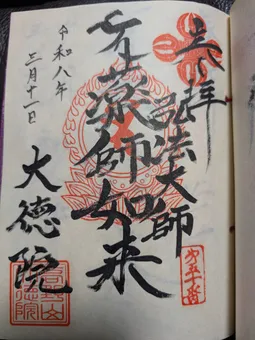 奉拝
弘法大師
薬師如来
令和八年
三月十一日
大徳院
第五十番